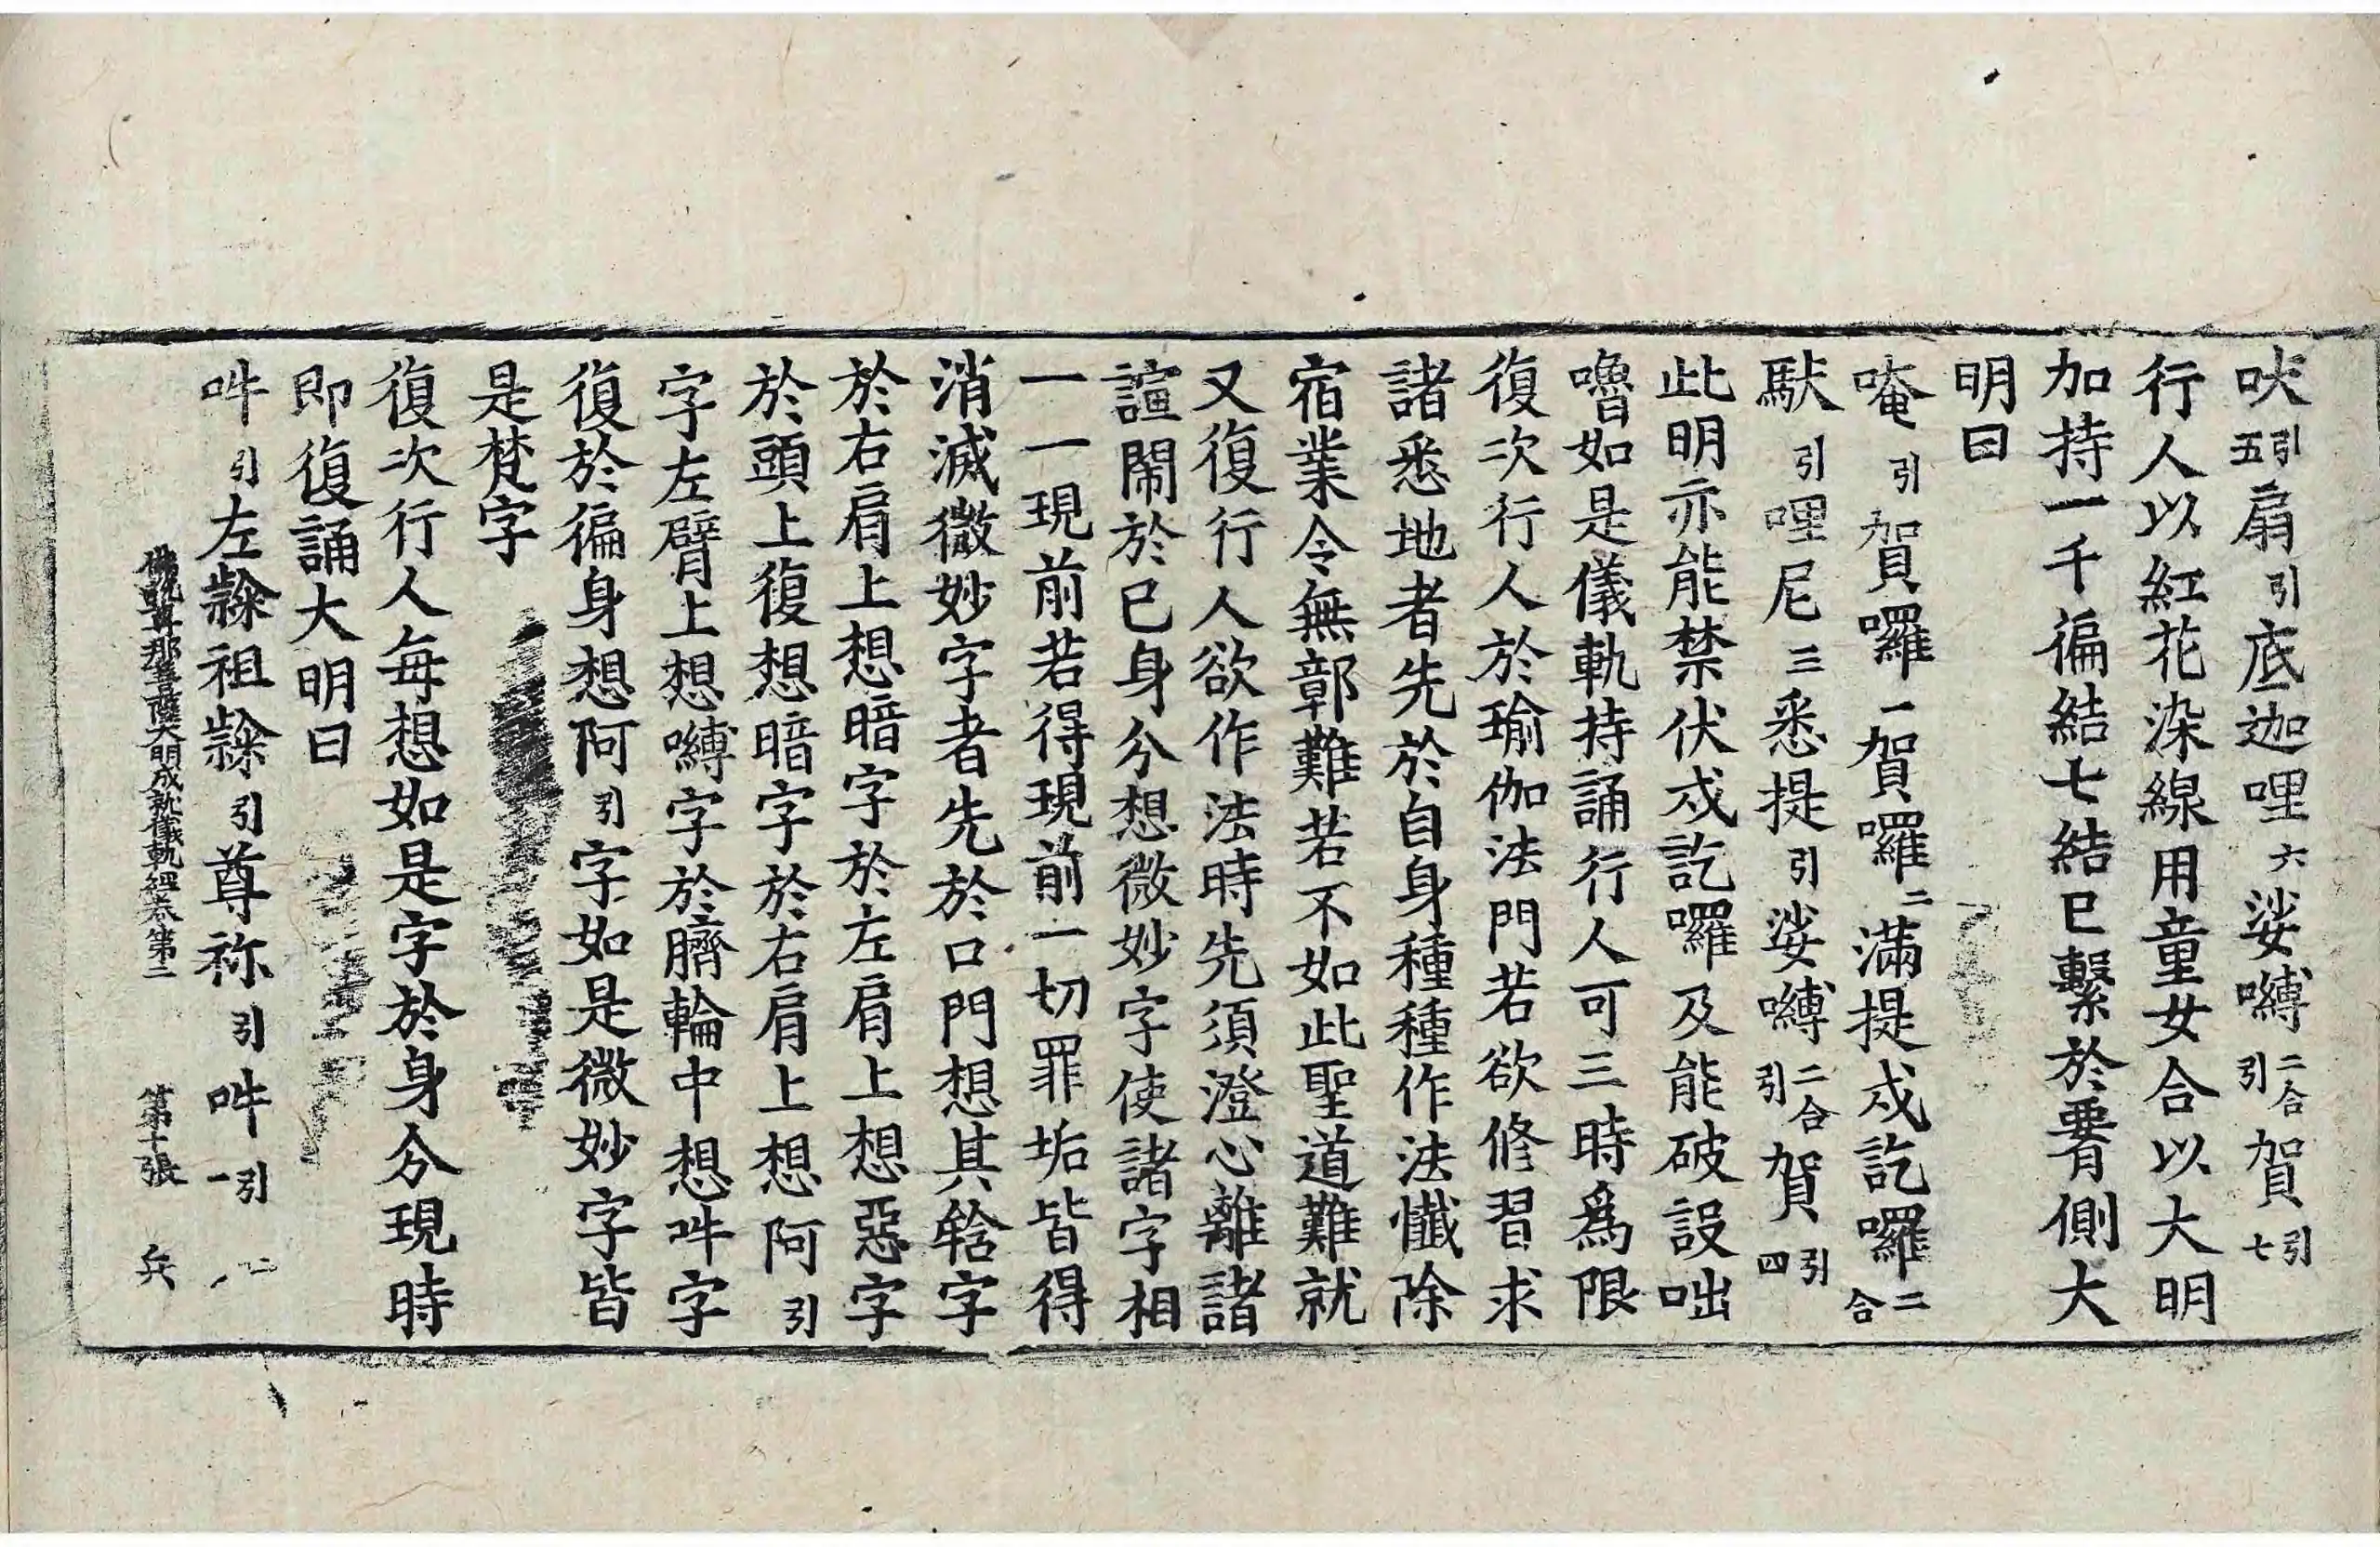 吠引五扇引底迦哩六娑嚩二合引賀引七
行人以紅花染線用童女合以大明
加持一千徧結七結已繫於𦝫側大
明曰
唵引賀囉一賀囉二滿提戍訖囉二合
馱引哩尼三悉提引娑嚩二合引賀引四
此明亦能禁伏戍訖囉及能破設咄
嚕如是儀軌持誦行人可三時爲限
復次行人於瑜伽法門若欲修習求
諸悉地者先於自身種種作法懺除
宿業令無鄣難若不如此聖道難就
又復行人欲作法時先須澄心離諸
諠閙於已身分想微妙字使諸字相
一一現前若得現前一切罪垢皆得
消滅微妙字者先於口門想其𤚥字
於右肩上想暗字於左肩上想惡字
於頭上復想暗字於右肩上想阿引
字左臂上想嚩字於臍輪中想吽字
復於徧身想阿引字如是微妙字皆
是梵字
復次行人每想如是字於身分現時
即復誦大明曰
吽引左隸祖隸引尊祢引吽引一
佛說尊那菩薩大明成就儀軌經卷第二 第十張 兵